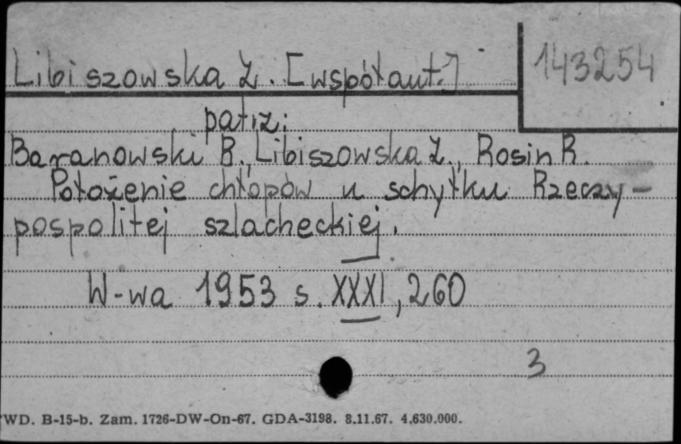 Libiszowska Z. [współaut.]
143254
patrz:
Baranowski B., Libiszowska Z., Rosin R.
Położenie chłopów u schyłku Rzeczy-
pospolitej szlacheckiej.
W-wa 1953 s. XXXI, 260
3
WD. B-15-b. Zam. 1726-DW-On-67. GDA-3198. 8.11.67. 4.630.000.